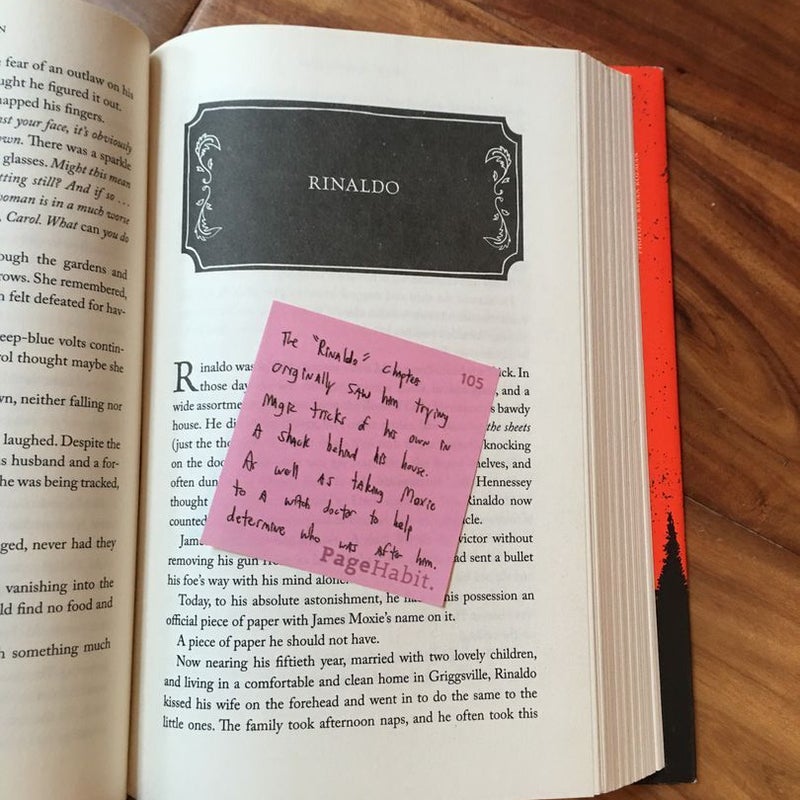 N
fear of an outlaw on his
ught he figured it out.
napped his fingers.
nst your face, it's obviously
own. There was a sparkle
glasses. Might this mean
tting still? And if so ...
woman is in a much worse
. Carol. What can you do
ough the gardens and
rows. She remembered,
n felt defeated for hav-
eep-blue volts contin-
rol thought maybe she
wn, neither falling nor
laughed. Despite the
s husband and a for-
he was being tracked,
ged, never had they
vanishing into the
ld find no food and
h something much
RINALDO
The "Rinaldo" chapter
105
originally saw him trying
magic tricks of his own in
A shack behind his house.
As well as taking Moxie
to A witch doctor to help
determine who was after him.
PageHabit.
Rinaldo was ick. In
those day , and a
wide assortme s bawdy
house. He di the sheets
(just the tho knocking
on the doo helves, and
often dun Hennessey
thought Rinaldo now
counted cle.
Jam victor without
removing his gun ad sent a bullet
his foe's way with his mind alone.
Today, to his absolute astonishment, he ha his possession an
official piece of paper with James Moxie's name on it.
A piece of paper he should not have.
Now nearing his fiftieth year, married with two lovely children,
and living in a comfortable and clean home in Griggsville, Rinaldo
kissed his wife on the forehead and went in to do the same to the
little ones. The family took afternoon naps, and he often took this